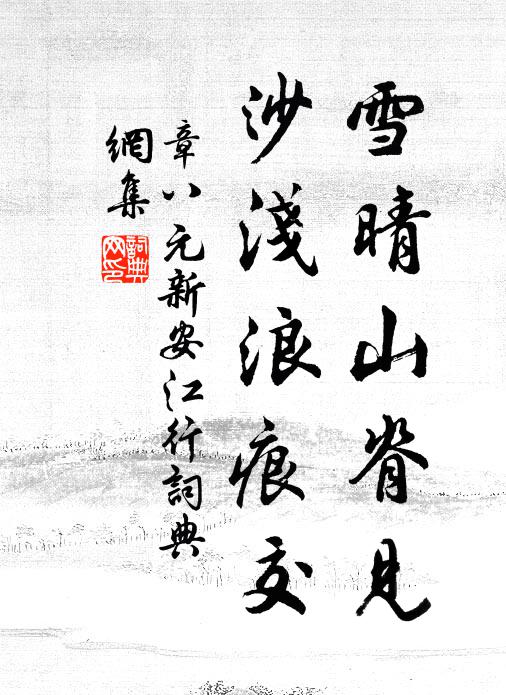 雪晴山脊見
沙淺浪痕交
章八元新安江行詞典
網集
詞典
网印